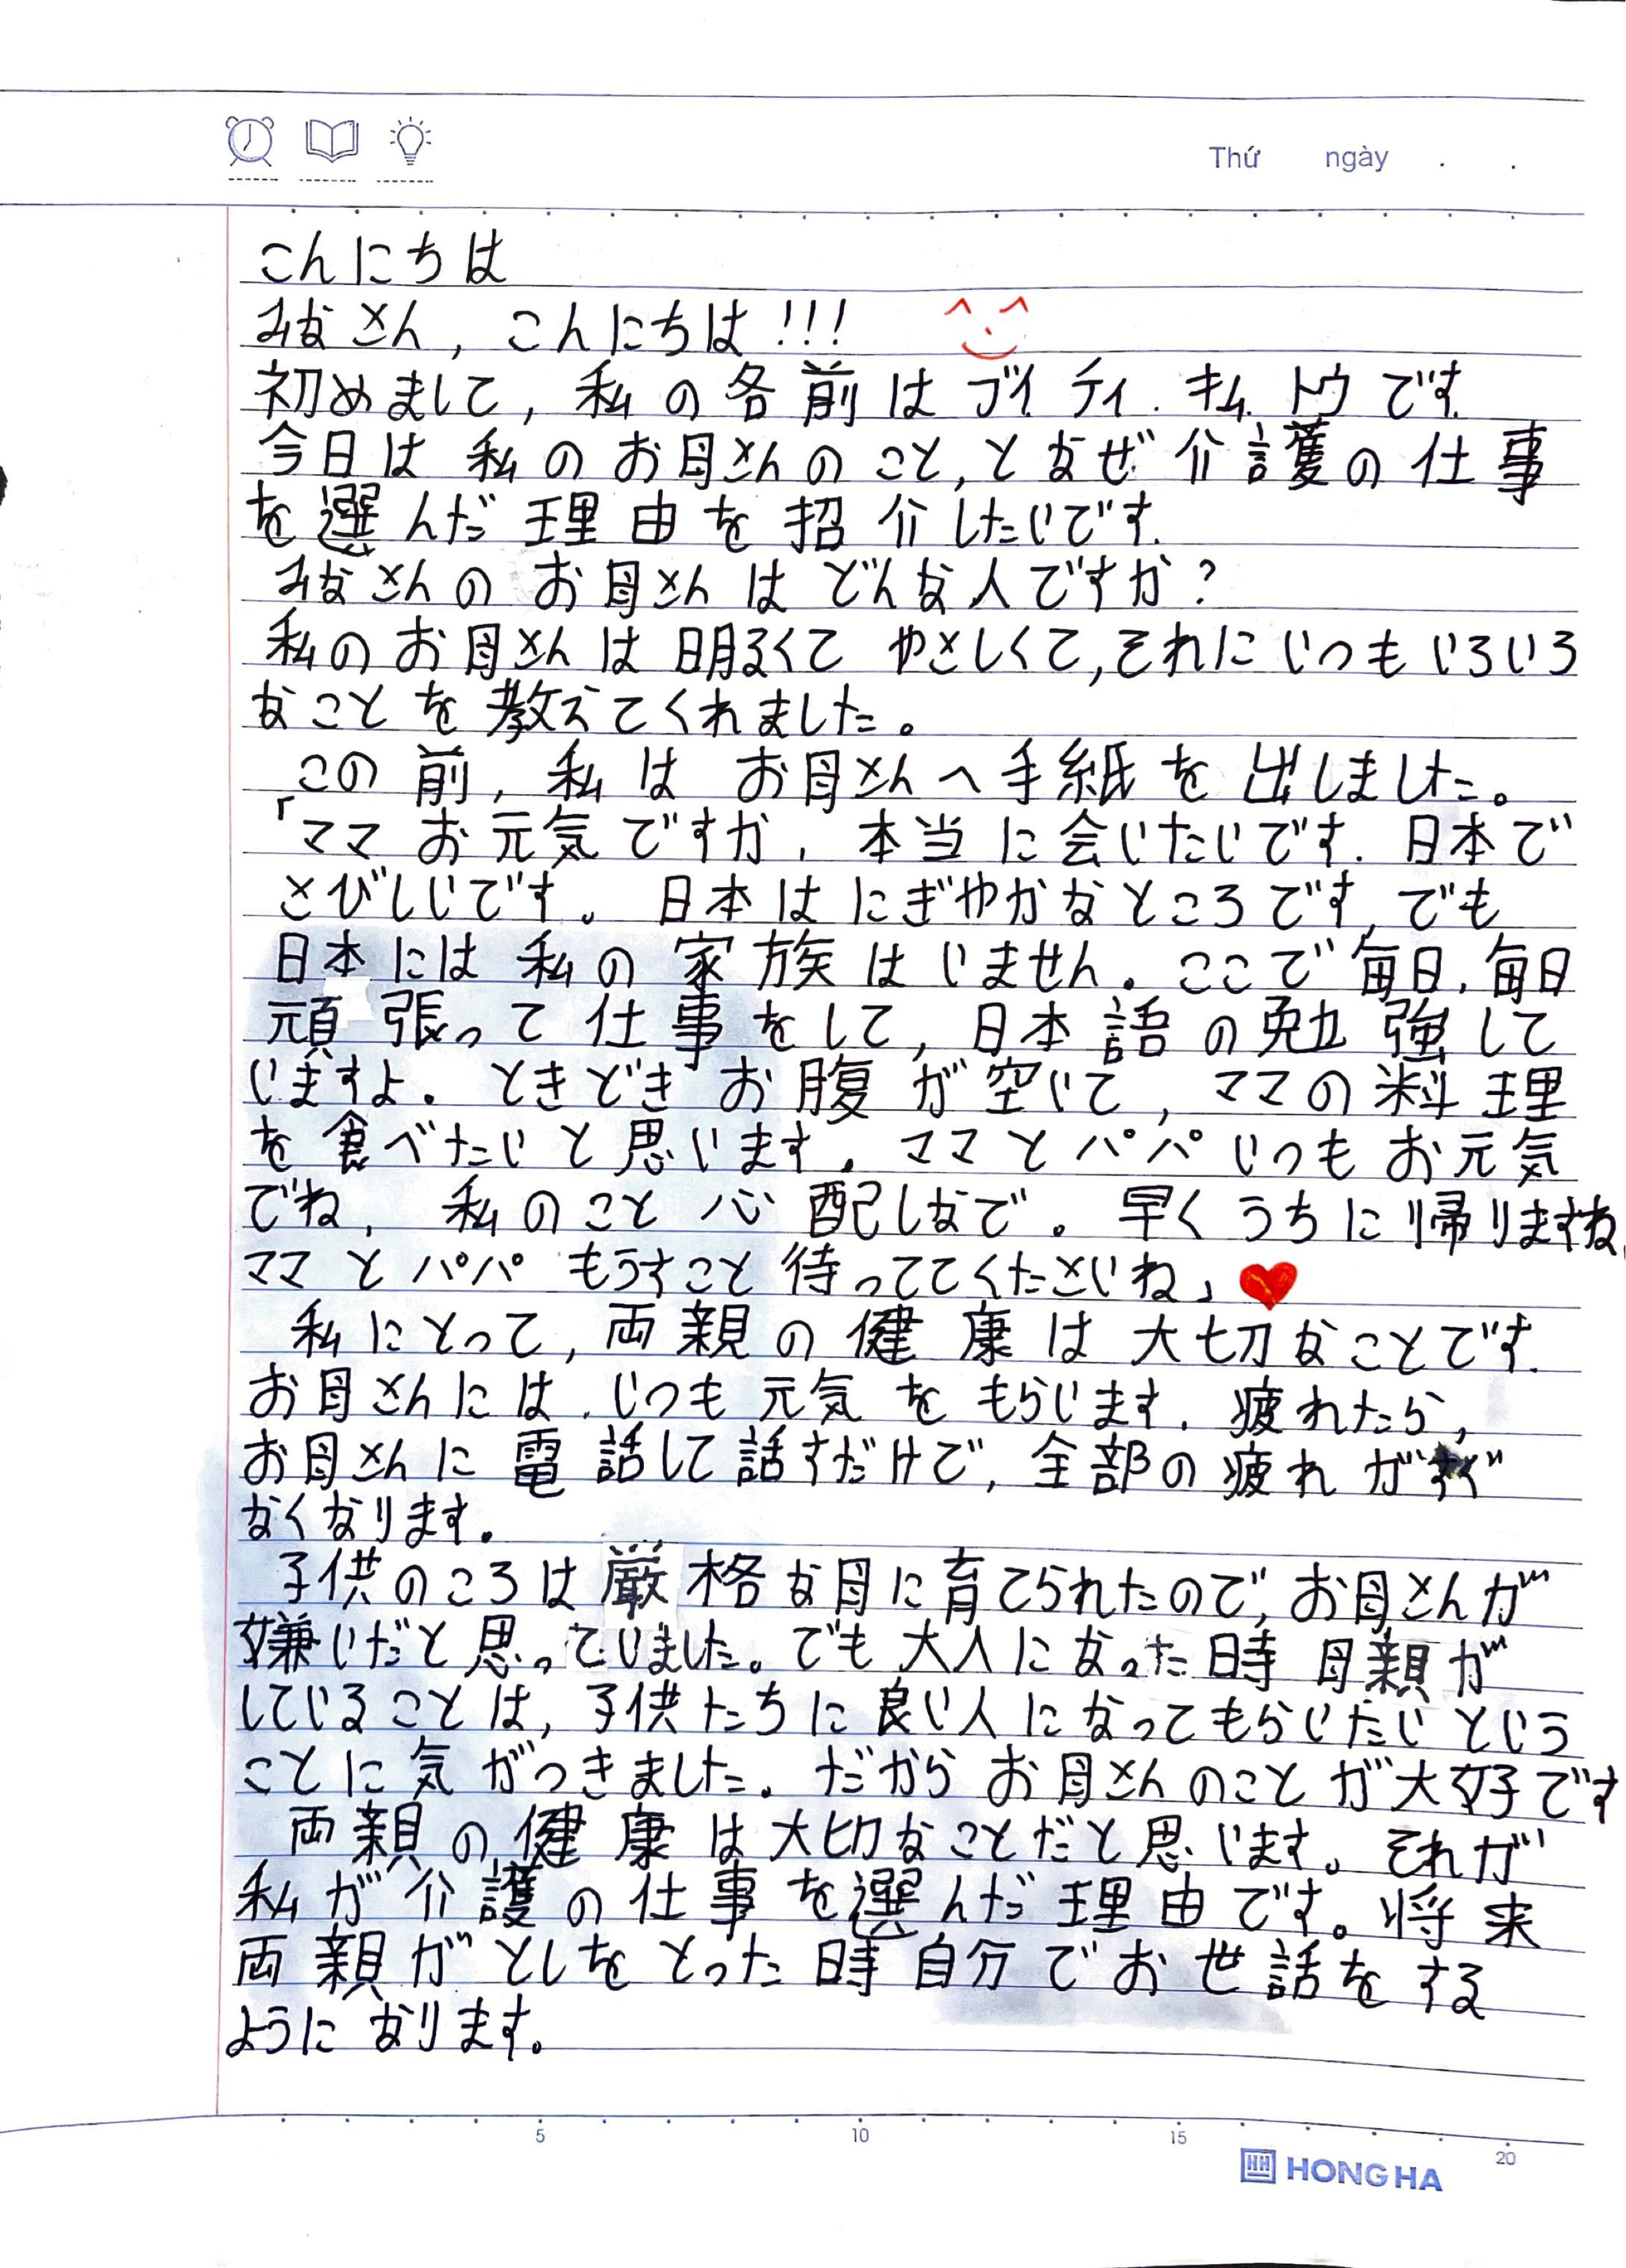 Thứ ngày . .
こんにちは
みなさん, こんにちは!!!
初めまして, 私の各前はブイ ティ. キム. トウです.
今日は私のお母さんのこと, となぜ介護の仕事
を選んだ理由を招介したいです.
みなさんのお母さんはどんな人ですか?
私のお母さんは明るくて やさしくて, それにいつもいろいろ
なことを教えてくれました。
この前, 私はお母さんへ手紙を出しました。
「ママお元気ですか. 本当に会いたいです. 日本で
さびしいです。日本はにぎやかなところです, でも
日本には私の家族はいません. ここで毎日, 毎日
頑張って仕事をして, 日本語の勉強して
いますよ. ときどきお腹が空いて, ママの料理
を食べたいと思います. ママとパパいつもお元気
でね, 私のこと心配しなで。早くうちに帰りますね.
ママとパパもうすこと待っててくたさいね」
私にとって, 両親の健康は大切なことです.
お母さんには. いつも元気をもらいます. 疲れたら,
お母さんに電話して話すだけで, 全部の疲れがすぐ
なくなります.
子供のころは厳格な母に育てられたので, お母さんが
嫌いだと思っていました。でも大人になった時母親が
していることは, 子供たちに良い人になってもらいたいという
ことに気がつきました. だからお母さんのことが大好です
両親の健康は大切なことだと思います。それが
私が介護の仕事を選んだ理由です。将来
両親がとしをとった時自分でお世話をする
ようになります。
5 10 15 20
HONG HA